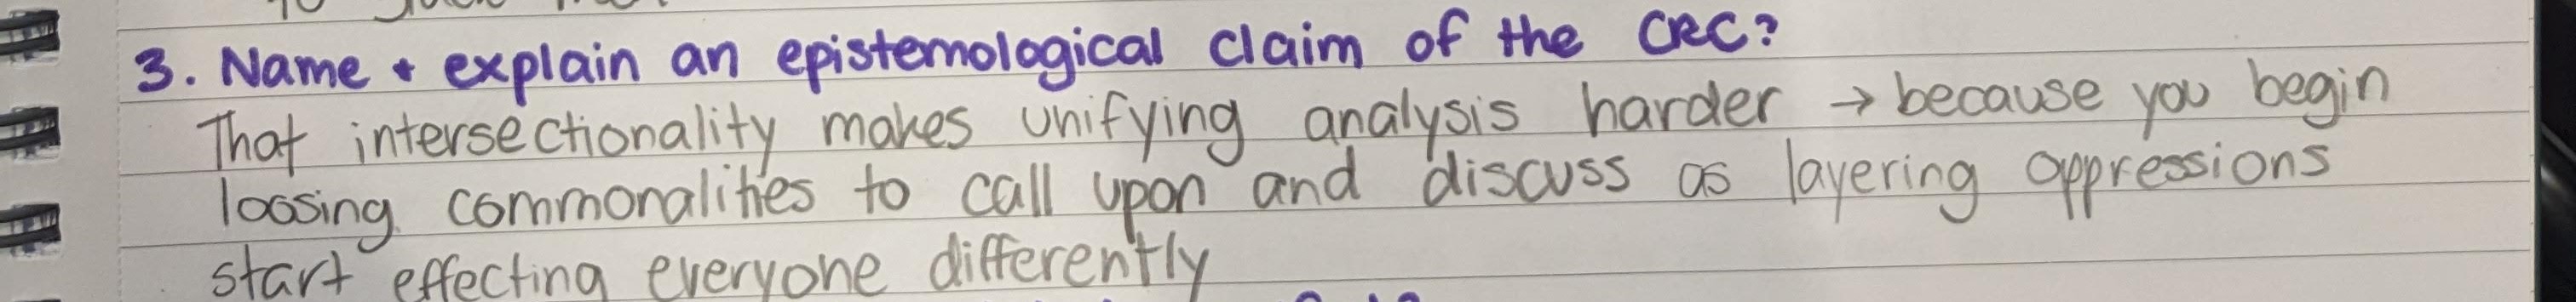 3. Name + explain an epistemological claim of the CRC?
That intersectionality makes unifying analysis harder → because you begin
loosing commonalities to call upon and discuss as layering oppressions
start effecting everyone differently